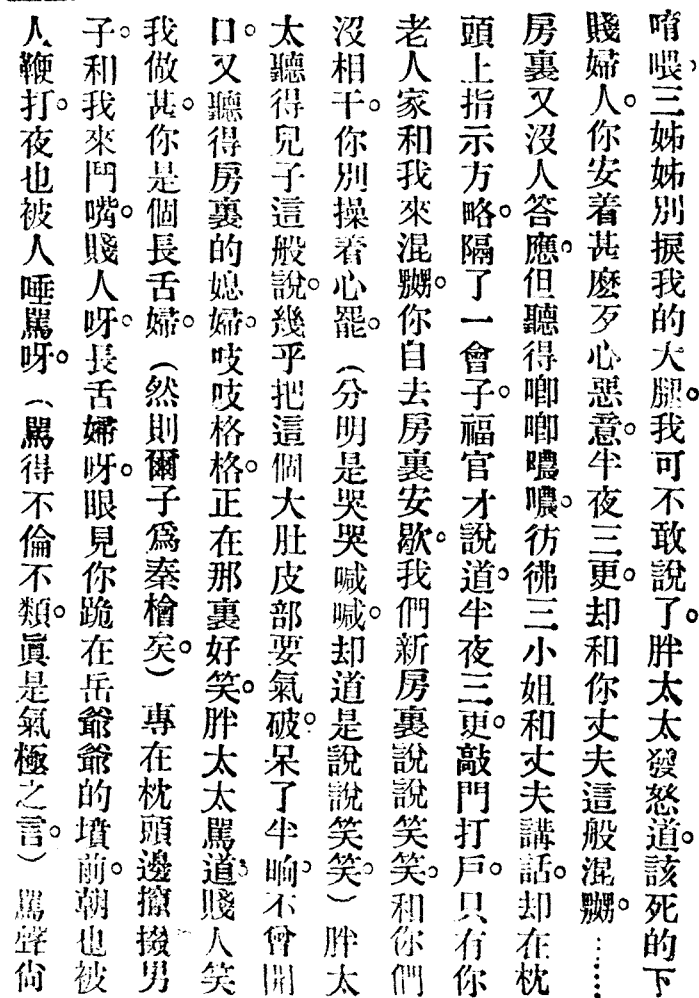 唷喂、三姊姊別捩我的大腿。我可不敢說了。胖太太發怒道。該死的下
賤婦人。你安着甚麽歹心惡意。半夜三更。却和你丈夫這般混嬲。……
房裏又沒人答應。但聽得唧唧噥噥。彷彿三小姐和丈夫講話。却在枕
頭上指示方略。隔了一會子。福官才說道。半夜三更。敲門打戶。只有你
老人家和我來混嬲。你自去房裏安歇。我們新房裏說說笑笑。和你們
沒相干。你別操着心罷。（分明是哭哭喊喊。却道是說說笑笑。）胖太
太聽得兒子這般說。幾乎把這個大肚皮部要氣破。呆了半晌。不曾開
口。又聽得房裏的媳婦。吱吱格格。正在那裏好笑。胖太太罵道、賤人笑
我做甚。你是個長舌婦。（然則爾子爲秦檜矣。）專在枕頭邊攛掇男
子。和我來鬥嘴。賤人呀。長舌婦呀。眼見你跪在岳爺爺的墳前。朝也被
人鞭打。夜也被人唾罵呀。（罵得不倫不類。眞是氣極之言。）罵聲尙